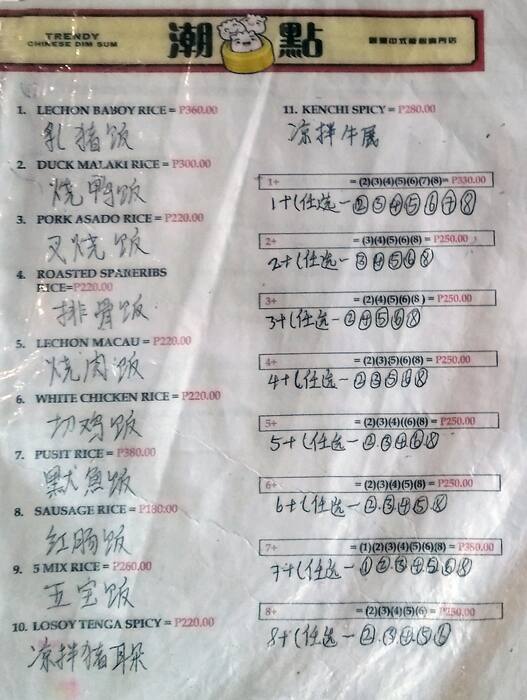 TRENDY
CHINESE DIM SUM
潮點
1. LECHON BABOY RICE = P360.00
乳猪饭
2. DUCK MALAKI RICE = P300.00
烧鸭饭
3. PORK ASADO RICE = P220.00
叉烧饭
4. ROASTED SPARERIBS
RICE=P220.00
排骨饭
5. LECHON MACAU = P220.00
烧肉饭
6. WHITE CHICKEN RICE = P220.00
切鸡饭
7. PUSIT RICE = P380.00
默鱼饭
8. SAUSAGE RICE = P180.00
红肠饭
9. 5 MIX RICE = P260.00
五宝饭
10. LOSOY TENGA SPICY = P220.00
凉拌猪耳朵
11. KENCHI SPICY = P280.00
凉拌牛展
1+ = (2)(3)(4)(5)(6)(7)(8)= P330.00
1+(任选一②③④⑤⑥⑦⑧
2+ = (3)(4)(5)(6)(8) = P250.00
2+(任选一③④⑤⑥⑧
3+ = (2)(4)(5)(6)(8 ) = P250.00
3+(任选一②④⑤⑥⑧
4+ = (2)(3)(5)(6)(8) = P250.00
4+(任选一②③⑤⑥⑧
5+ = (2)(3)(4)((6)(8) = P250.00
5+(任选一②③④⑥⑧
6+ = (2)(3)(4)(5)(8) = P250.00
6+(任选一②.③④⑤⑧
7+ = (1)(2)(3)(4)(5)(6)(8) = P380.00
7+(任选一①②③④⑤⑥⑧
8+ = (2)(3)(4)(5)(6) = P250.00
8+(任选一②.③④⑤⑥